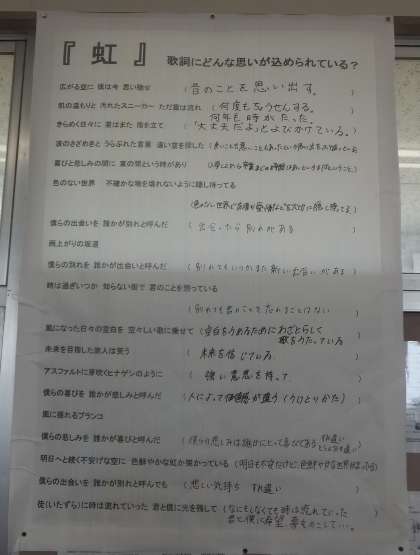 『 虹 』 歌詞にどんな思いが込められている？
広がる空に 僕は今 思い馳せ （昔のことを思い出す。）
肌の温もりと 汚れたスニーカー ただ重は流れ （何度も
何年も時がたった。）
きらめく日々に 君はまた 指を立て （「大丈夫だよ」とよびかけている。）
波のさざめき うらぶれた言葉 遠い空を探した
喜びと悲しみの間に 束の間という時があり
色のない世界 不確かな地を壊れないように隠し持ってる
僕らの出会いを 誰かが別れと呼んだ （出会ったら別れがある）
雨上がりの坂道
僕らの別れを 誰かが出会いと呼んだ （別れてもいつかまた新しい出会いがある）
時は過ぎいつか 知らない街で 君のことを想っている
（別れても君のことを忘れることはない）
風になった日々の空白を 空々しい歌に乗せて （空白をうめるためにわざとらしく
歌をうたっている）
未来を目指した旅人は笑う （未来を信じている）
アスファルトに芽吹くヒナゲシのように （強い意思を持って）
僕らの喜びを 誰かが悲しみと呼んだ （人によって価値感が違う（うけとりかた））
風に揺れるブランコ
僕らの悲しみを 誰かが喜びと呼んだ
明日へと続く不安げな空に 色鮮やかな虹が架かっている
僕らの出会いを 誰かが別れと呼んでも （悲しい気持ち すれ違い）
徒(いたずら)に時は流れていった 君と僕に光を残して （なにもしなくても時は流れていった
君と僕に希望 夢をのこして…。）